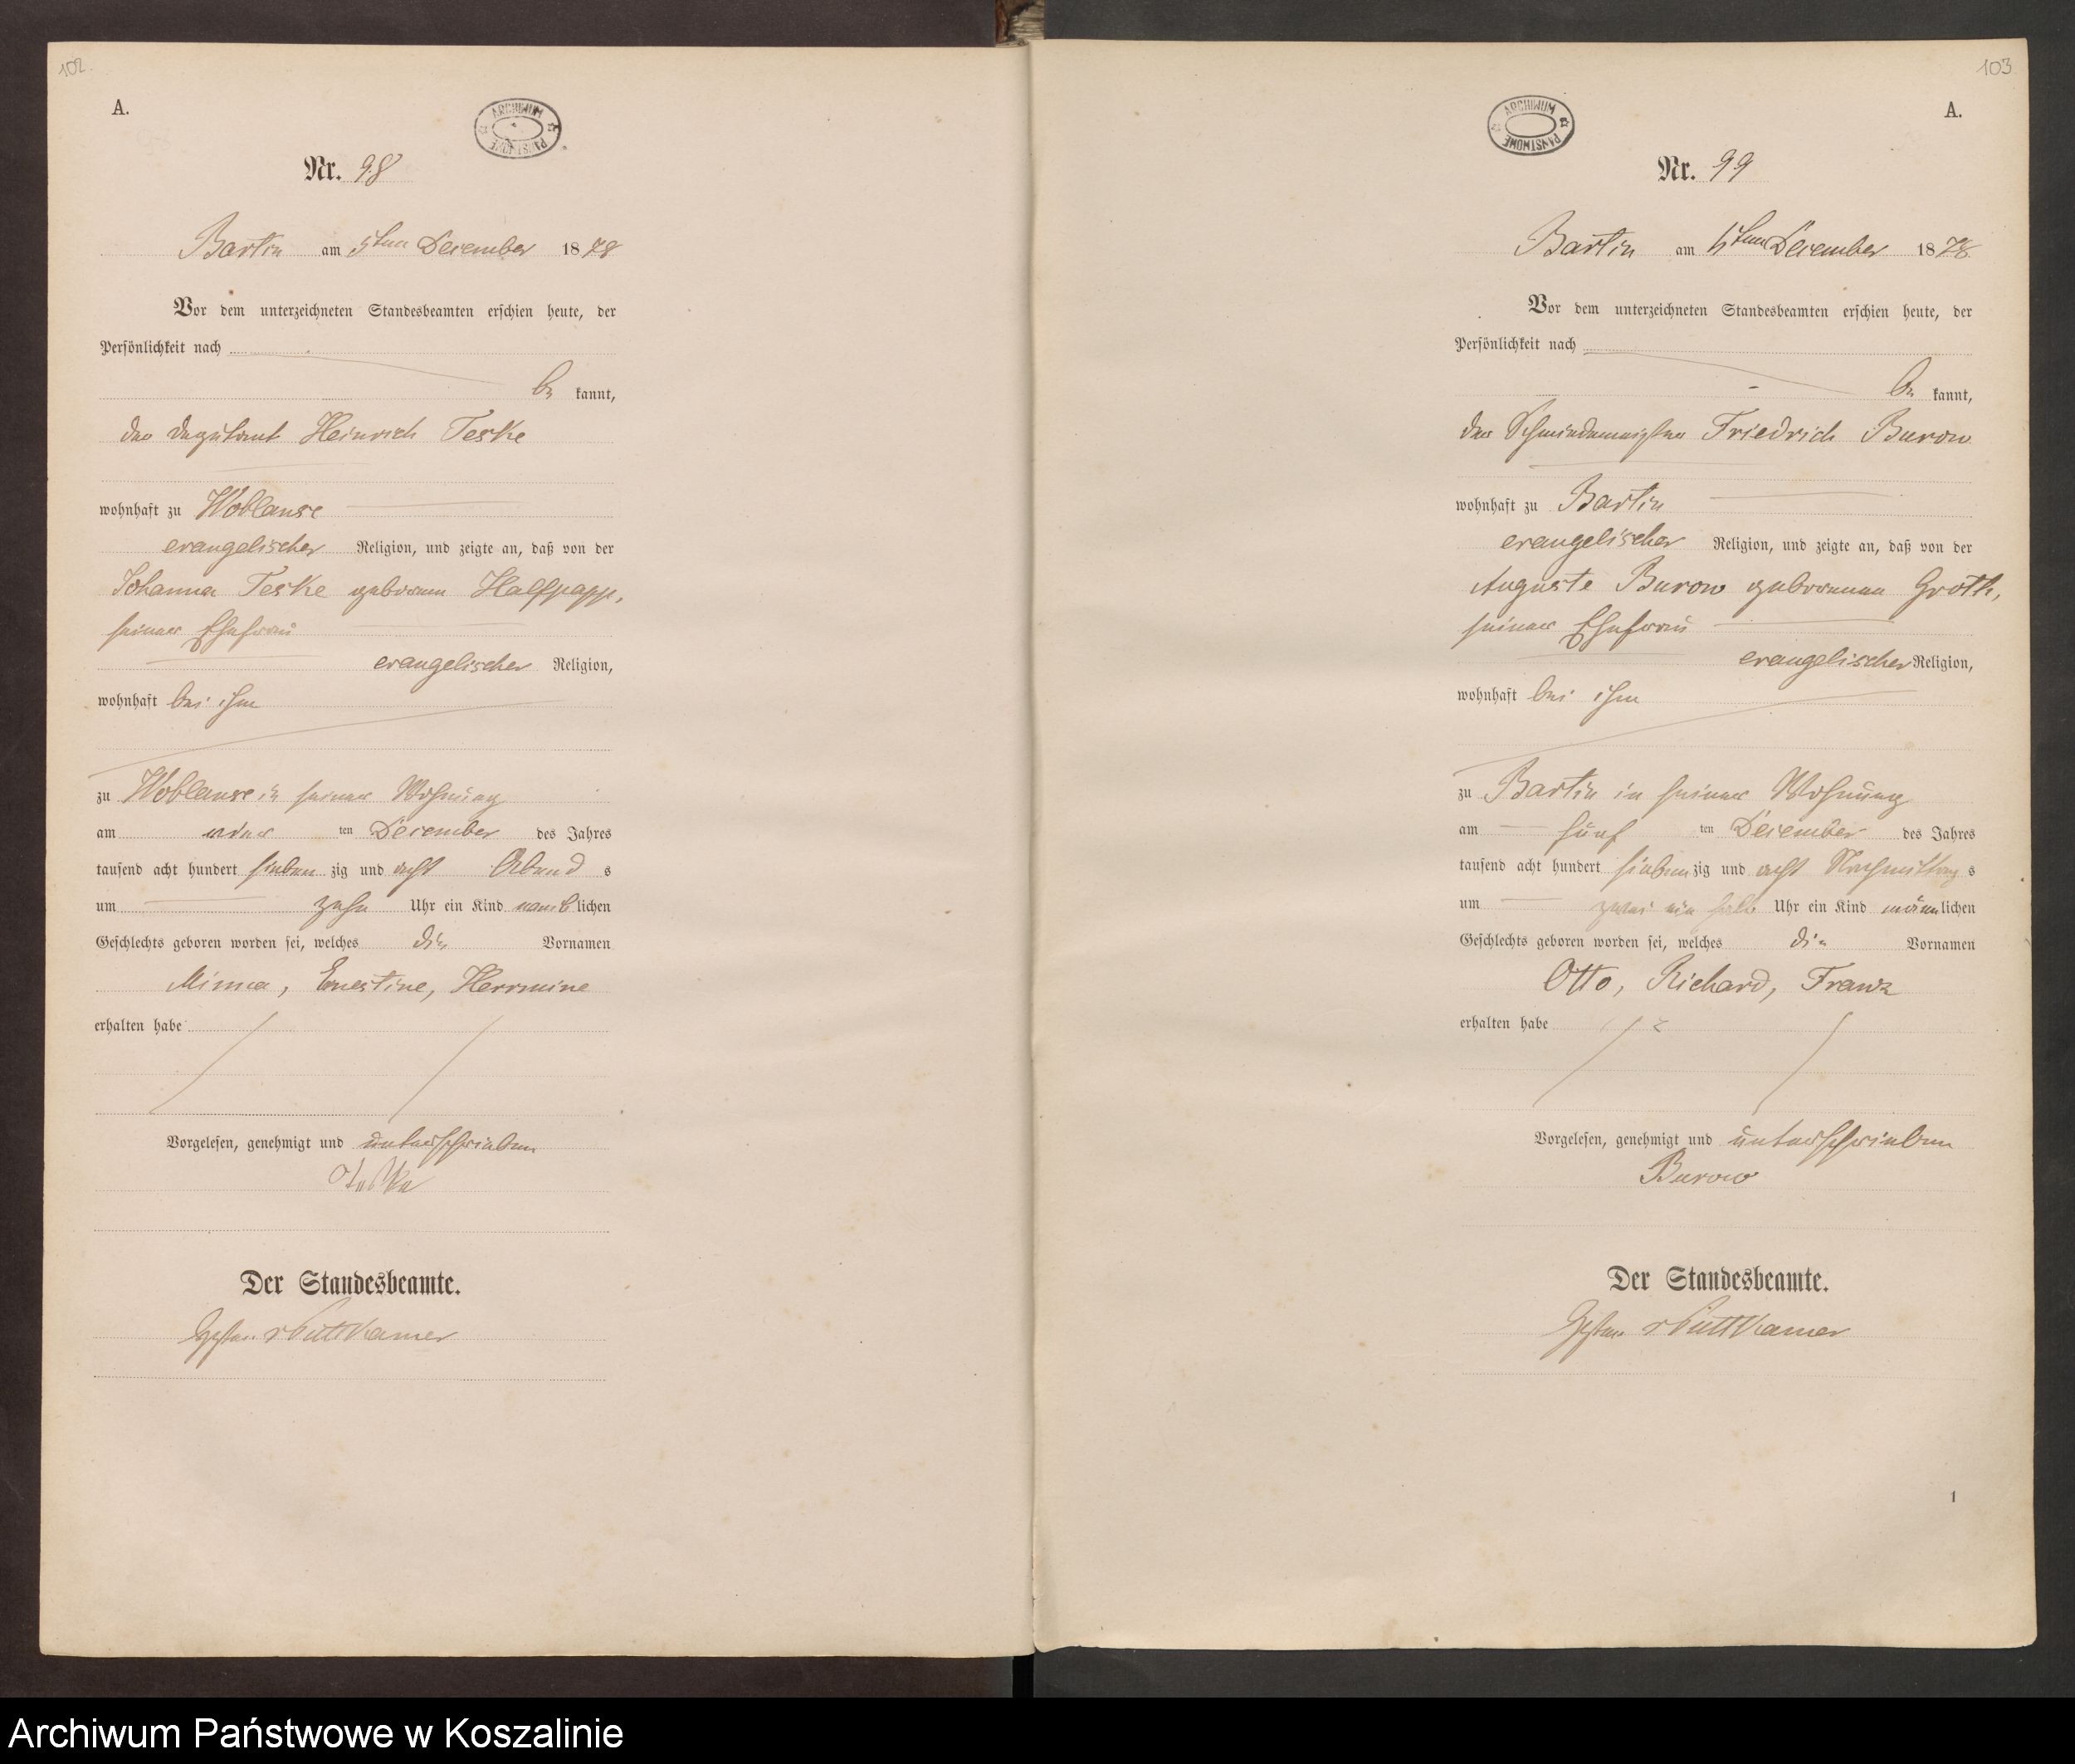 102.
A.
ARCHIWUM PAŃSTWOWE
Nr. 98
Bartin am 5ten December 1878
Vor dem unterzeichneten Standesbeamten erschien heute, der
Persönlichkeit nach
be kannt,
der Deputant Heinrich Teske
wohnhaft zu Woblanse
evangelischer Religion, und zeigte an, daß von der
Johanna Teske geborenen Halfpapp,
seiner Ehefrau
evangelischer Religion,
wohnhaft bei ihm
zu Woblanse in seiner Wohnung
am ten December des Jahres
tausend acht hundert sieben zig und acht Abend s
um zehn Uhr ein Kind weiblichen
Geschlechts geboren worden sei, welches die Vornamen
Minna, Ernestine, Herrmine
erhalten habe
Vorgelesen, genehmigt und unterschrieben
Teske
Der Standesbeamte.
v Puttkamer
103
A.
ARCHIWUM PAŃSTWOWE
Nr. 99
Bartin am 5ten December 1878
Vor dem unterzeichneten Standesbeamten erschien heute, der
Persönlichkeit nach
be kannt,
der Schmiedemeister Friedrich Burow
wohnhaft zu Bartin
evangelischer Religion, und zeigte an, daß von der
Auguste Burow geborenen Groth,
seiner Ehefrau
evangelischer Religion,
wohnhaft bei ihm
zu Bartin in seiner Wohnung
am fünf ten December des Jahres
tausend acht hundert sieben zig und acht Nachmittag s
um zwei ein halb Uhr ein Kind männlichen
Geschlechts geboren worden sei, welches die Vornamen
Otto, Richard, Franz
erhalten habe
Vorgelesen, genehmigt und unterschrieben
Burow
Der Standesbeamte.
v Puttkamer
1
Archiwum Państwowe w Koszalinie